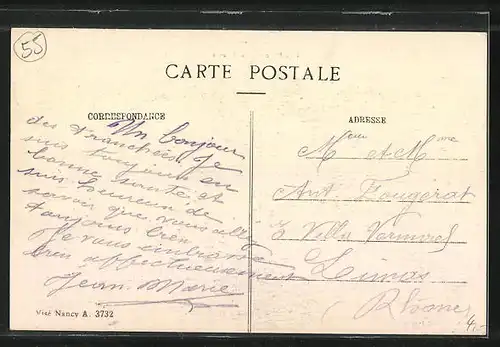 55
CARTE POSTALE
CORRESPONDANCE
Un bonjour
des tranchées. Je
suis toujours en
bonne santé, et
suis heureux de
savoir que vous allez
toujours bien
Je vous embrasse
bien affectueusement
Jean-Marie
Visé Nancy A. 3732
ADRESSE
Mʳ et Mᵐᵉ
Ant. Fougerat
à Villa Vermorel
Limas
Rhône
4.-